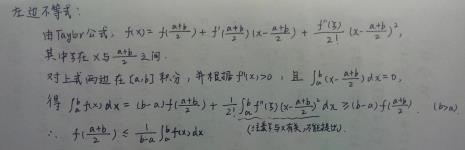 左边不等式:
由Taylor公式, f(x) = f((a+b)/2) + f'((a+b)/2)(x-(a+b)/2) + f''(ξ)/2! (x-(a+b)/2)²,
其中ξ在x与(a+b)/2之间.
对上式两边在[a,b]积分, 并根据f''(x)>0, 且 ∫ₐᵇ(x-(a+b)/2)dx=0,
得 ∫ₐᵇf(x)dx = (b-a)f((a+b)/2) + 1/2! ∫ₐᵇf''(ξ)(x-(a+b)/2)²dx ≥ (b-a)f((a+b)/2). (b>a)
∴ f((a+b)/2) ≤ 1/(b-a) ∫ₐᵇf(x)dx (注意ξ与x有关,不能提出).